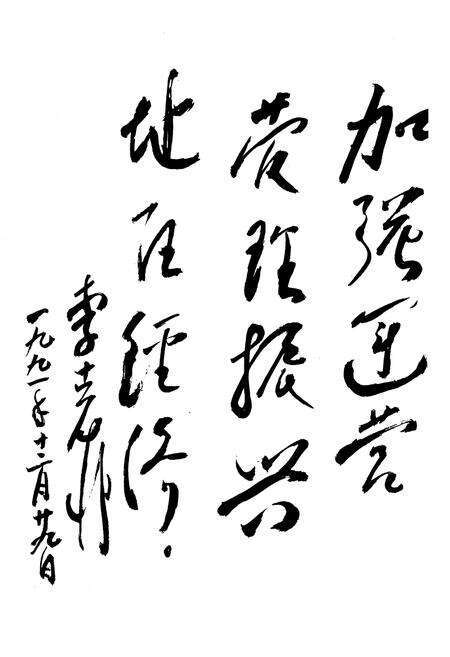 加强運营
管理振兴
地区經济.
李
一九九一年十二月廿九日